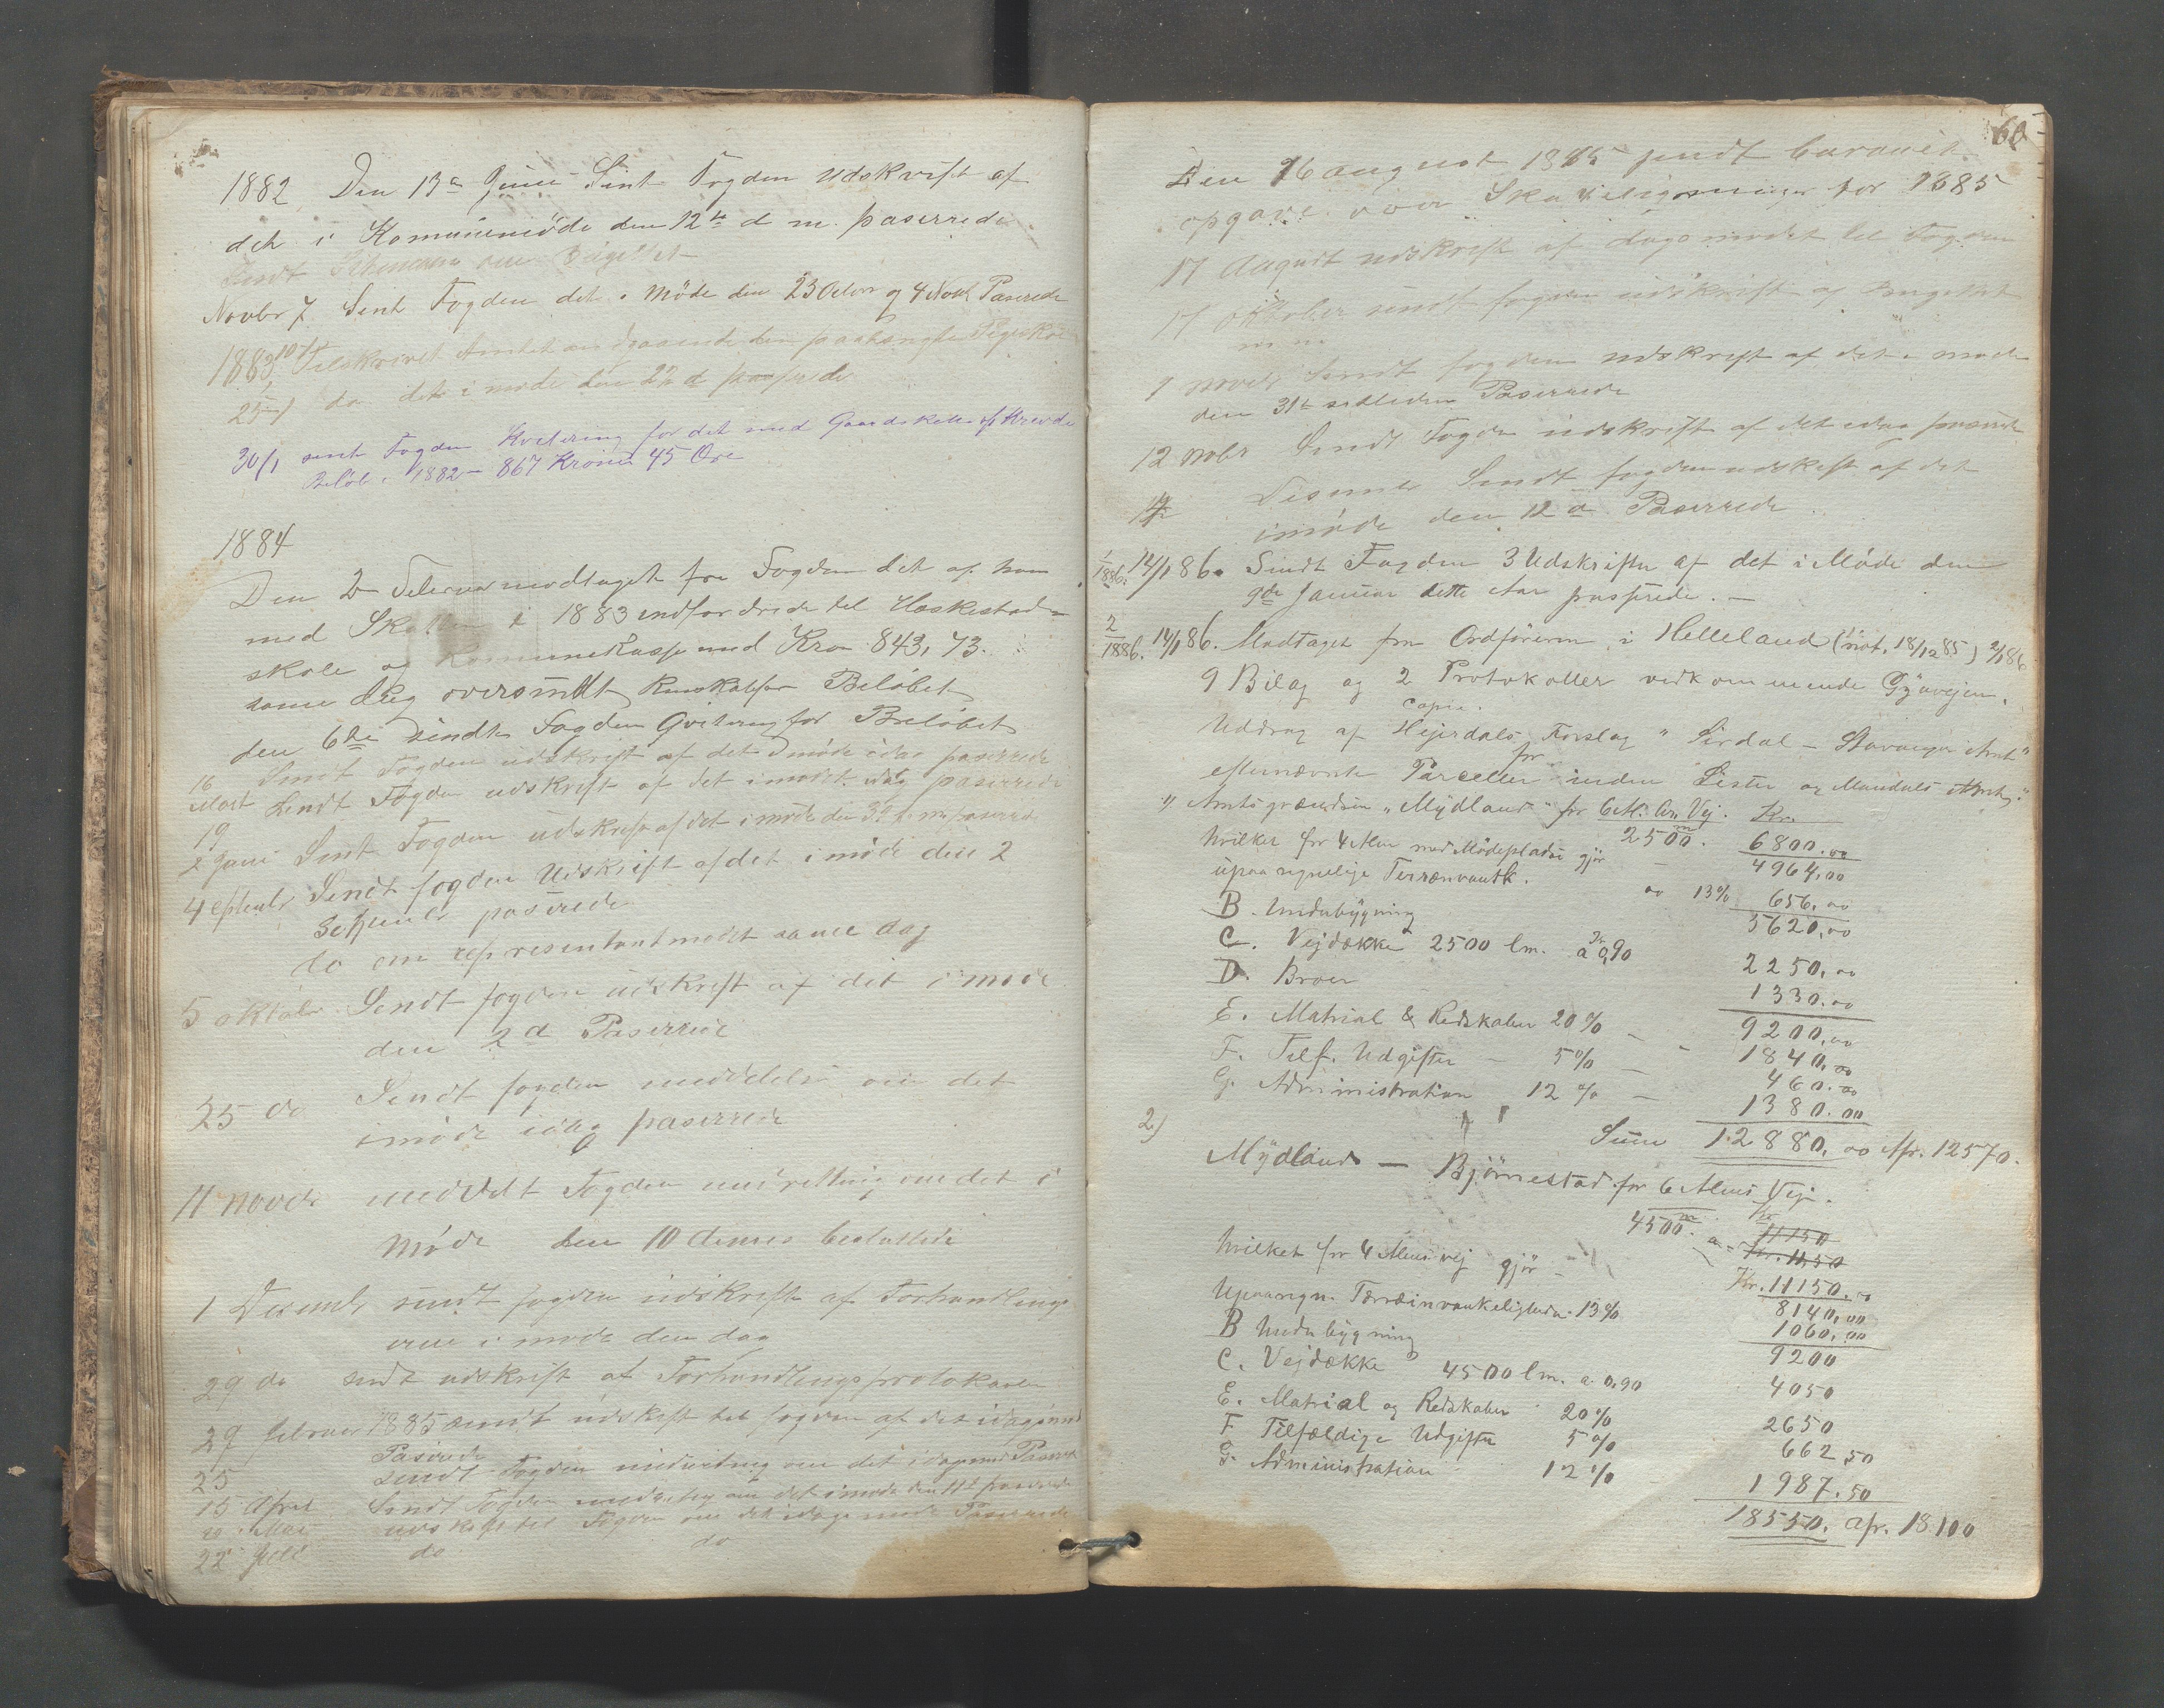 1882 Den 13de Juni Sent Fogden Udskrift af
det i Komunemøde den 12te d m. paserrede
Sendt
Novbr 7 Sent Fogden det i Møde den 23 Octbr og 4 Novb Paserede
1883 10/1 Tilskrevet Amtet angaaende den paatænkte
25/1 do det i møde den 22 d passerede
30/1 sent Fogden Kvitering for det med Gaardskatten
Beløb i 1882 – 867 Kroner 45 Øre
1884
Den 2 Februar modtaget fra Fogden det af ham
med Skatten i 1883 indfordrede til Heskestad
skole og Kommunekasse med Kro 843,73.
same dag oversendt Beløbet
den 6te sendt Fogden Qvitering for Beløbet
16 Sendt Fogden udskrift af det i møde idag paserrede
Mart Sendt Fogden udskrift af det i mødet idag paserrede
19
2 Juni Sent Fogden udskrift af det i møde den 31 f. m. paserrede
4 Septembr Sendt fogden Udskrift af det i møde den 2
Septembr paserede
do om representantmødet samme dag
5 oktobr Sendt fogden udskrift af det i møde
den 2 d Paserrede
25 do Sendt fogden meddelelse om det
i møde idag paserrede
11 Novbr meddelt Fogden underretning om det i
Møde den 10 dennes besluttede
1 Desembr sendt fogden udskrift af Forhandlings
erne i møde den dag
29 do sendt udskrift af Forhandlingsprotokollen
27 februar 1885 sendt udskrift til fogden af det idag
Paserede
25 sendt Fogden underretning om det i dag Paserede
15 April Sendt Fogden underretning om det i møde den 11te passerede
20 Mai udskrift til Fogden om det idag i møde Paserrede
22 Juli do do
60
Den 16 august 1885 sendt
opgave over Skatteligninger for 1885
17 August udskrift af dags mødet til Fogden
17 oktober sendt fogden udskrift af Bugettet
m. m.
7 novbr Sendt fogden udskrift af det i møde
den 31te sidstleden Paserrede
12 nobr Sendt Fogden udskrift af det idag passerede
14 Desembr Sendt fogden udskrift af det
i møde den 12 d Paserrede
1/1886. 14/1 86. Sendt Fogden 3 Udskrifter af det i Møde den
9de Januar dette Aar passerede. —
2/1886. 14/1 86. Modtaget fra Ordføreren i Helleland (not. 18/12 85) 2/1 86
9 Bilag og 2 Protokoller vedkommende Gyavejen.
Copie.
Uddrag af Hejerdals Forslag "Sirdal – Stavanger Amt"
for
efternævnte Parceller inden Lister og Mandals Amt."
1) Amtsgrændsen "Mydland" for 6 Al. br. Vej. Kr.
2500 m. 6800.00
hvilket for 4 Alen med Mødepladse gjør — 4964,00
upaaregnelige Terrænvansk. 00 13% 656.00
B. Underbygning 5620,00
C. Vejdække 2500 lm. a Kr. 0,90 2250,00
D. Broer 1330.00
9200,00
E. Matrial & Redskaber 20% – – 1840,00
F. Tilf. Udgifter — 5% — 460.00
G. Administration 12% — 1380.00
2) Sum 12880,00 Afr. 12570.
Mydland — Bjørnestad for 6 Alens Vej.
4500 m. a 11150
Kr. 11,50
Kr. 11150.00
hvilket for 4 Alens vej gjør – 8140,00
Upaaregn. Terræinvankeligheder 13% 1060,00
B Underbygning 9200
C. Vejdække 4500 lm. a. 0,90 4050
E. Matrial og Redskaber 20% 2650
F Tilfældige Udgifter 5% 662,50
G. Administration 12% 1987.50
18550. Afr. 18100